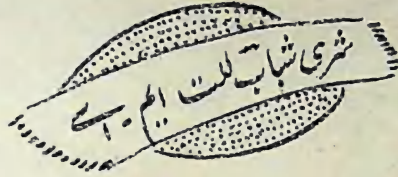 شری شباب للت ایم۔اے